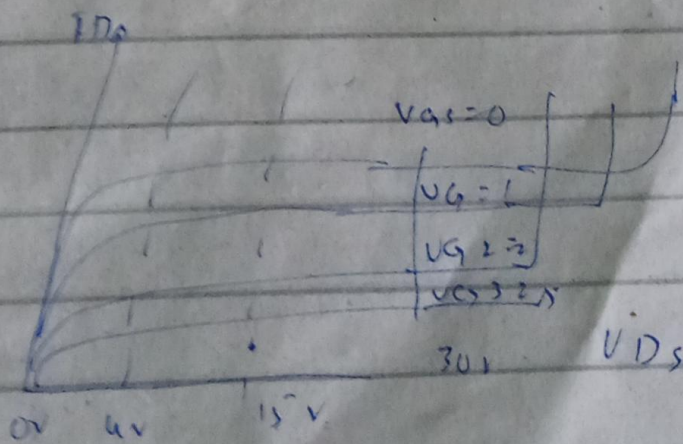 IDs
VGS=0
VG=1
VG2=2
30v
VDs
0v 4v 15v